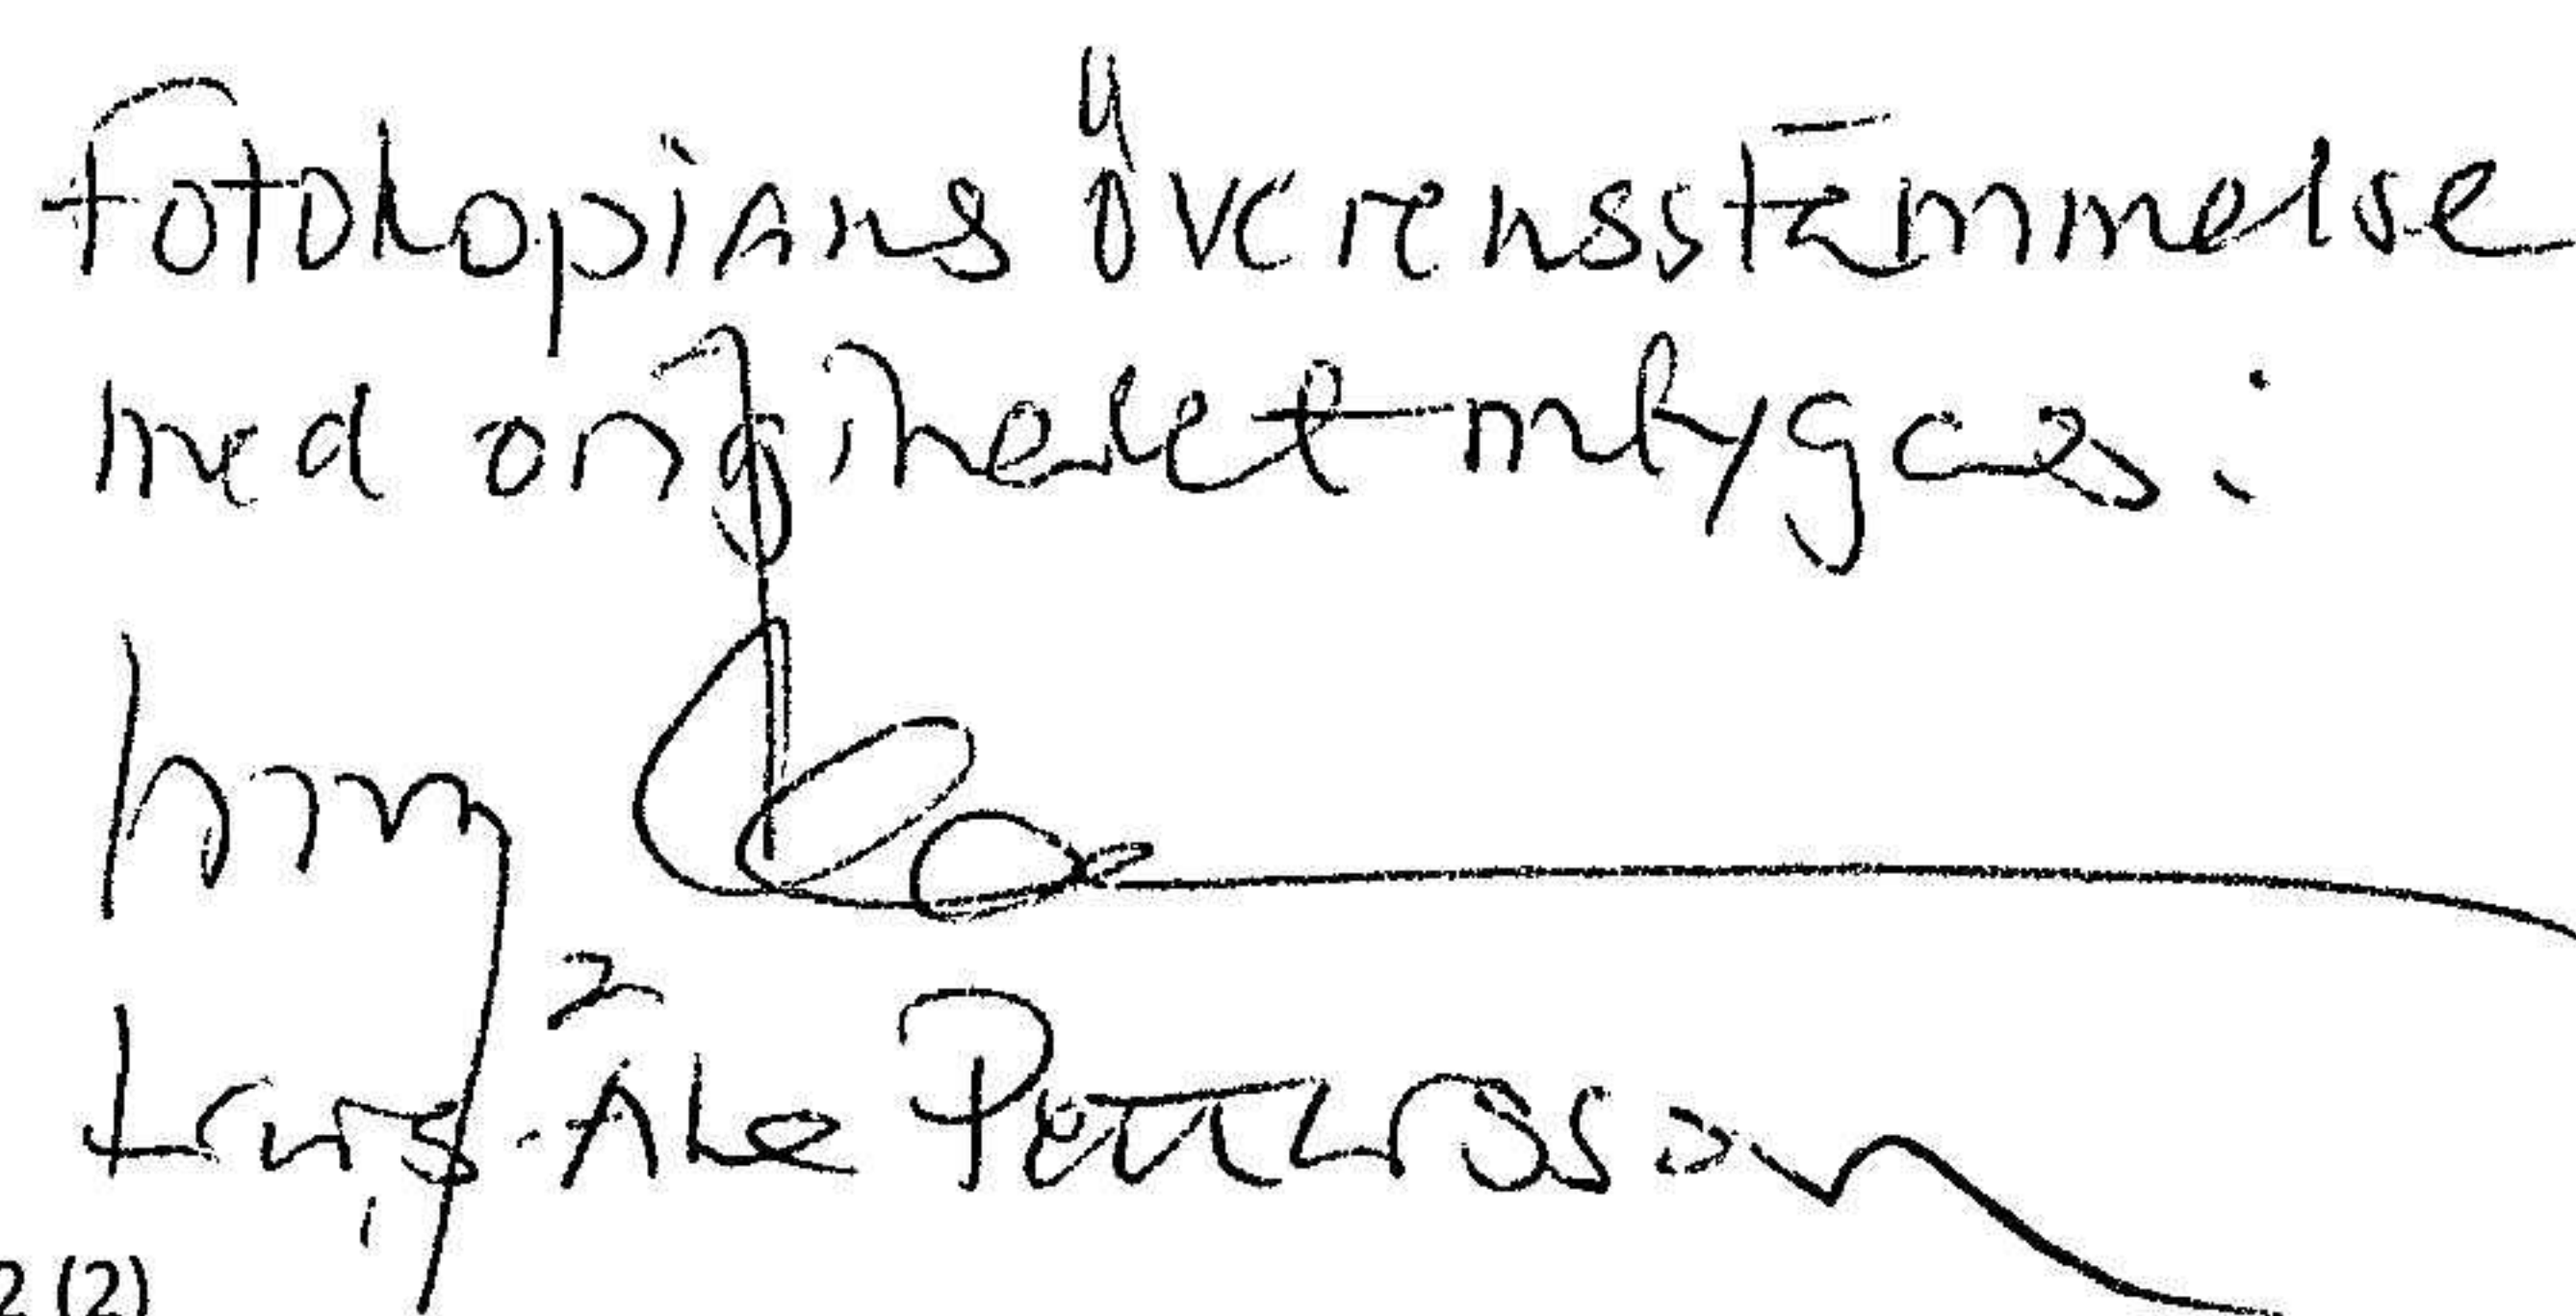 Fotokopians överensstämmelse
med originalet intygas:
Åke Pettersson
2 (2)